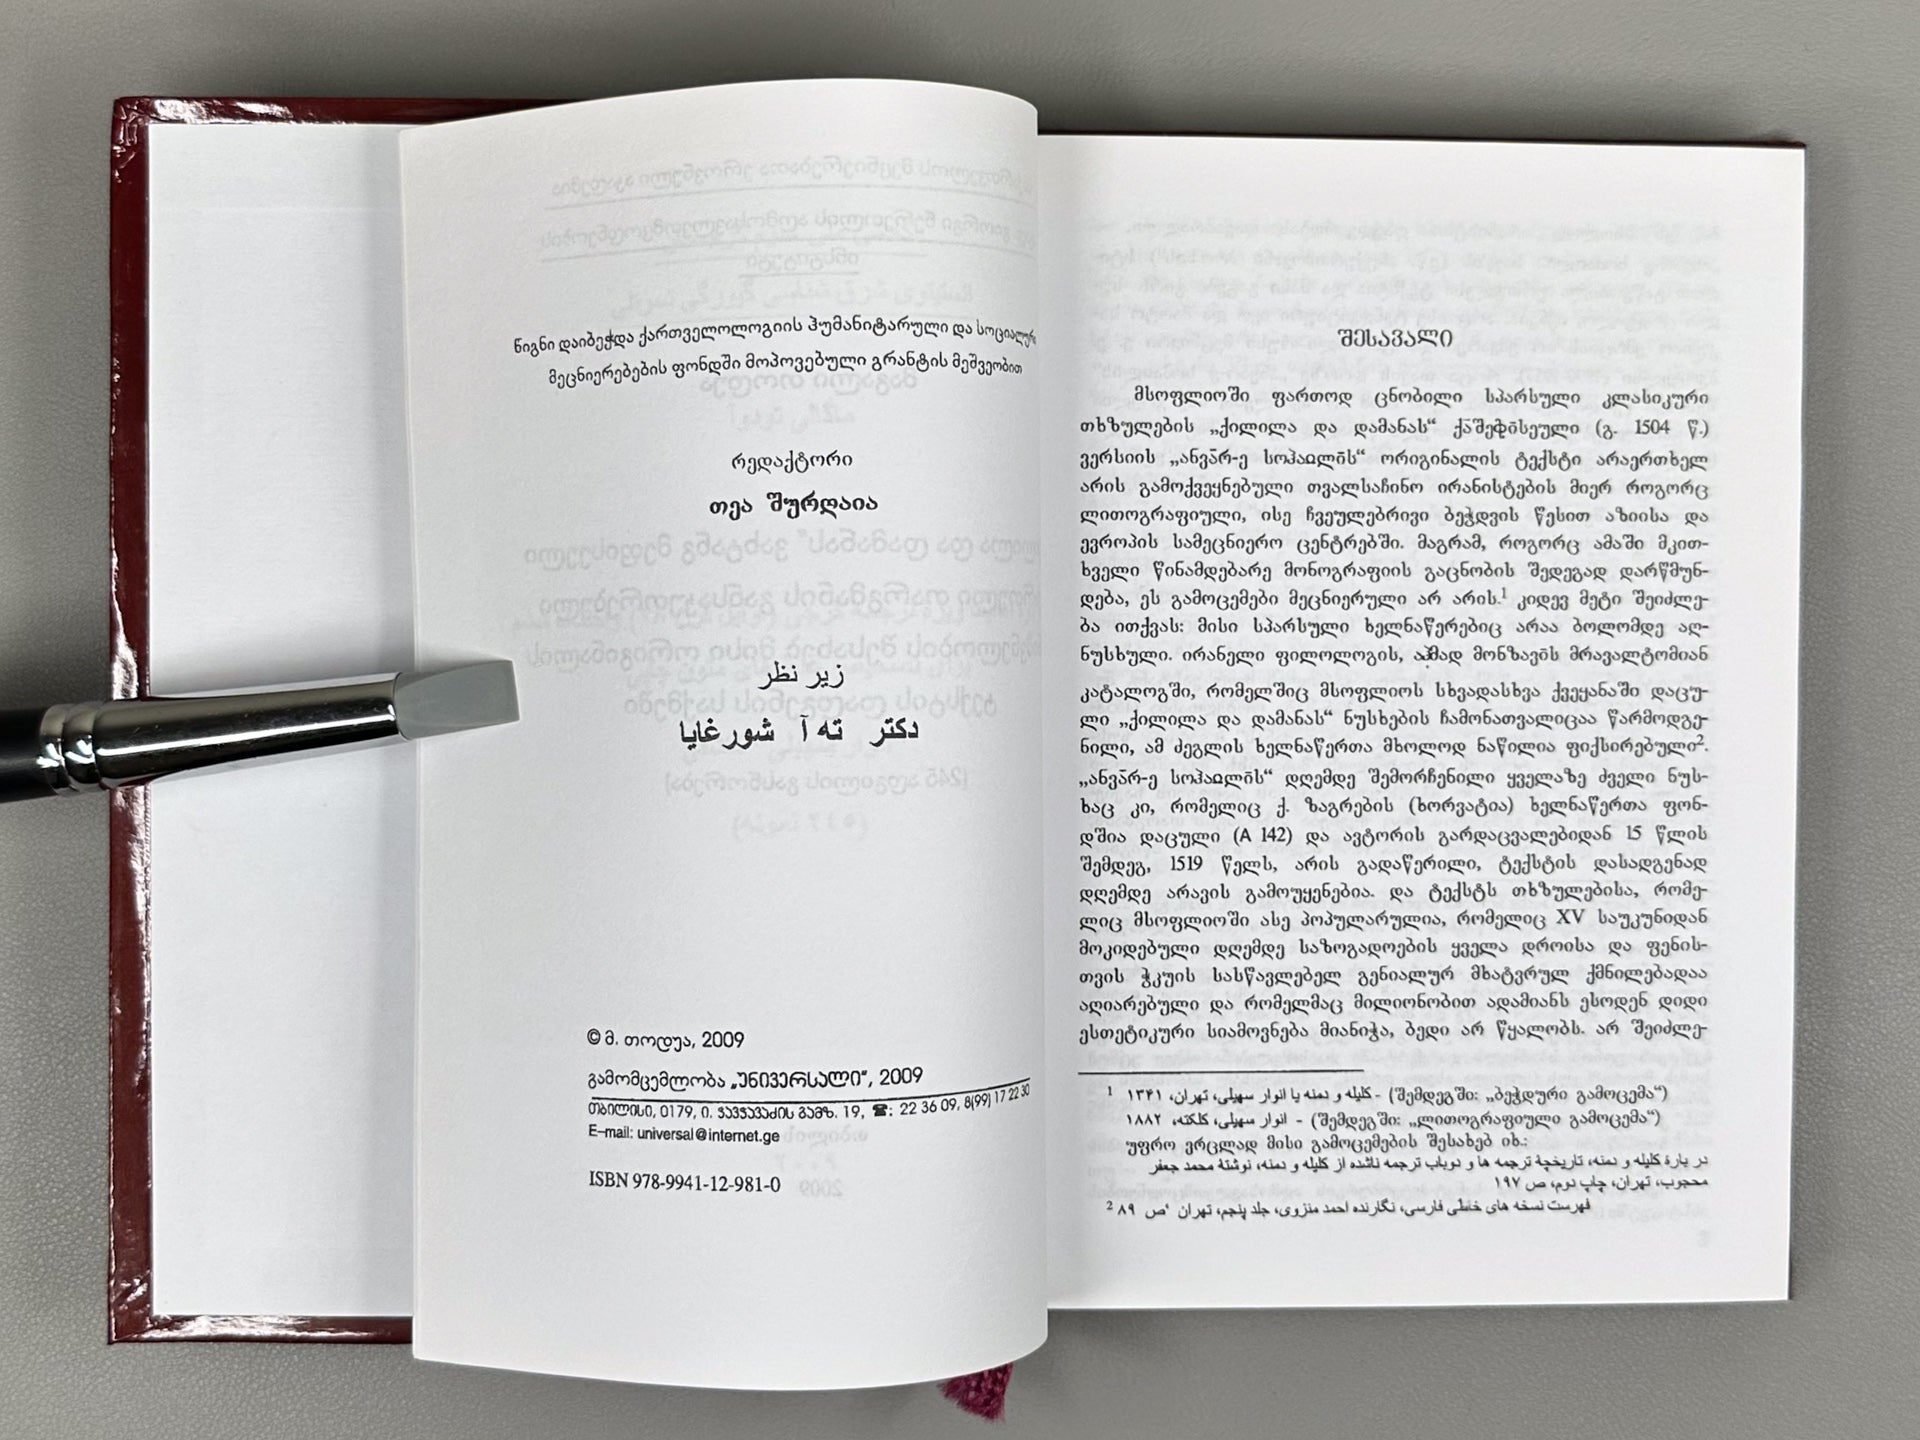 წიგნი დაიბეჭდა ქართველოლოგიის ჰუმანიტარული და სოციალურ
მეცნიერებების ფონდში მოპოვებული გრანტის მეშვეობით
რედაქტორი
თეა შურღაია
زیر نظر
دکتر ته آ شورغایا
© მ. თოდუა, 2009
გამომცემლობა „უნივერსალი“, 2009
თბილისი, 0179, ი. ჭავჭავაძის გამზ. 19, ☎: 22 36 09, 8(99) 17 22 30
E-mail: universal@internet.ge
ISBN 978-9941-12-981-0
შესავალი
მსოფლიოში ფართოდ ცნობილი სპარსული კლასიკური
თხზულების „ქილილა და დამანას“ ქāშეფīსეული (გ. 1504 წ.)
ვერსიის „ანვāრ-ე სოჰაჲლīს“ ორიგინალის ტექსტი არაერთხელ
არის გამოქვეყნებული თვალსაჩინო ირანისტების მიერ როგორც
ლითოგრაფიული, ისე ჩვეულებრივი ბეჭდვის წესით აზიისა და
ევროპის სამეცნიერო ცენტრებში. მაგრამ, როგორც ამაში მკით-
ხველი წინამდებარე მონოგრაფიის გაცნობის შედეგად დარწმუნ-
დება, ეს გამოცემები მეცნიერული არ არის.¹ კიდევ მეტი შეიძლე-
ბა ითქვას: მისი სპარსული ხელნაწერებიც არაა ბოლომდე აღ-
ნუსხული. ირანელი ფილოლოგის, აჰმად მონზავīს მრავალტომიან
კატალოგში, რომელშიც მსოფლიოს სხვადასხვა ქვეყანაში დაცუ-
ლი „ქილილა და დამანას“ ნუსხების ჩამონათვალიცაა წარმოდგე-
ნილი, ამ ძეგლის ხელნაწერთა მხოლოდ ნაწილია ფიქსირებული².
„ანვāრ-ე სოჰაჲლīს“ დღემდე შემორჩენილი ყველაზე ძველი ნუს-
ხაც კი, რომელიც ქ. ზაგრების (ხორვატია) ხელნაწერთა ფონ-
დშია დაცული (A 142) და ავტორის გარდაცვალებიდან 15 წლის
შემდეგ, 1519 წელს, არის გადაწერილი, ტექსტის დასადგენად
დღემდე არავის გამოუყენებია. და ტექსტს თხზულებისა, რომე-
ლიც მსოფლიოში ასე პოპულარულია, რომელიც XV საუკუნიდან
მოკიდებული დღემდე საზოგადოების ყველა დროისა და ფენის-
თვის ჭკუის სასწავლებელ გენიალურ მხატვრულ ქმნილებადაა
აღიარებული და რომელმაც მილიონობით ადამიანს ესოდენ დიდი
ესთეტიკური სიამოვნება მიანიჭა, ბედი არ წყალობს. არ შეიძლე-
¹ کلیله و دمنه یا انوار سهیلی، تهران، ۱۳۴۱ - (შემდეგში: „ბეჭდური გამოცემა“)
انوار سهیلی، کلکته، ۱۸۸۲ - (შემდეგში: „ლითოგრაფიული გამოცემა“)
უფრო ვრცლად მისი გამოცემების შესახებ იხ.:
در بارۀ کلیله و دمنه، تاریخچۀ ترجمه ها و دوباب ترجمه ناشده از کلیله و دمنه، نوشتۀ محمد جعفر
محجوب، تهران، چاپ دوم، ص ۱۹۷
² فهرست نسخه های خطی فارسی، نگارنده احمد منزوی، جلد پنجم، تهران ، ص ۸۹